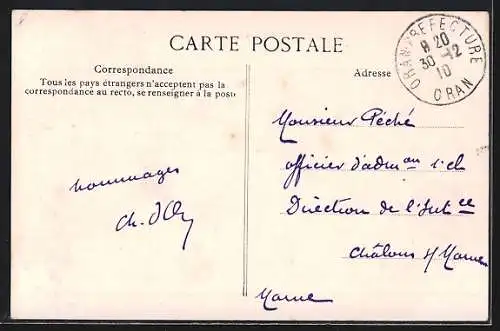 CARTE POSTALE
Correspondance
Tous les pays étrangers n'acceptent pas la
correspondance au recto, se renseigner à la poste
Adresse
ORAN-PREFECTURE
8 20
30-12
10
ORAN
hommages
Ch. d'
Monsieur Péché
officier d'adm on 1e cl
Direction de l'Int ce
Châlons s/ Marne
Marne